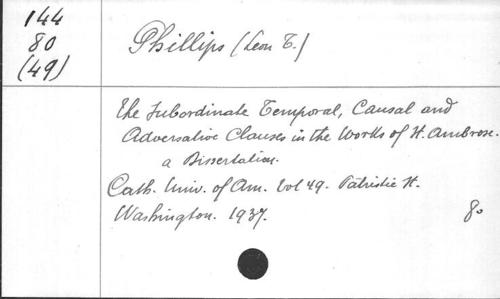 144
80
(49)
Phillips (Leon T.)
The Subordinate Temporal, Causal and
Adversative Clauses in the Works of St. Ambrose.
a Dissertation.
Cath. Univ. of Am. Vol 49. Patristic St.
Washington. 1937. 8o